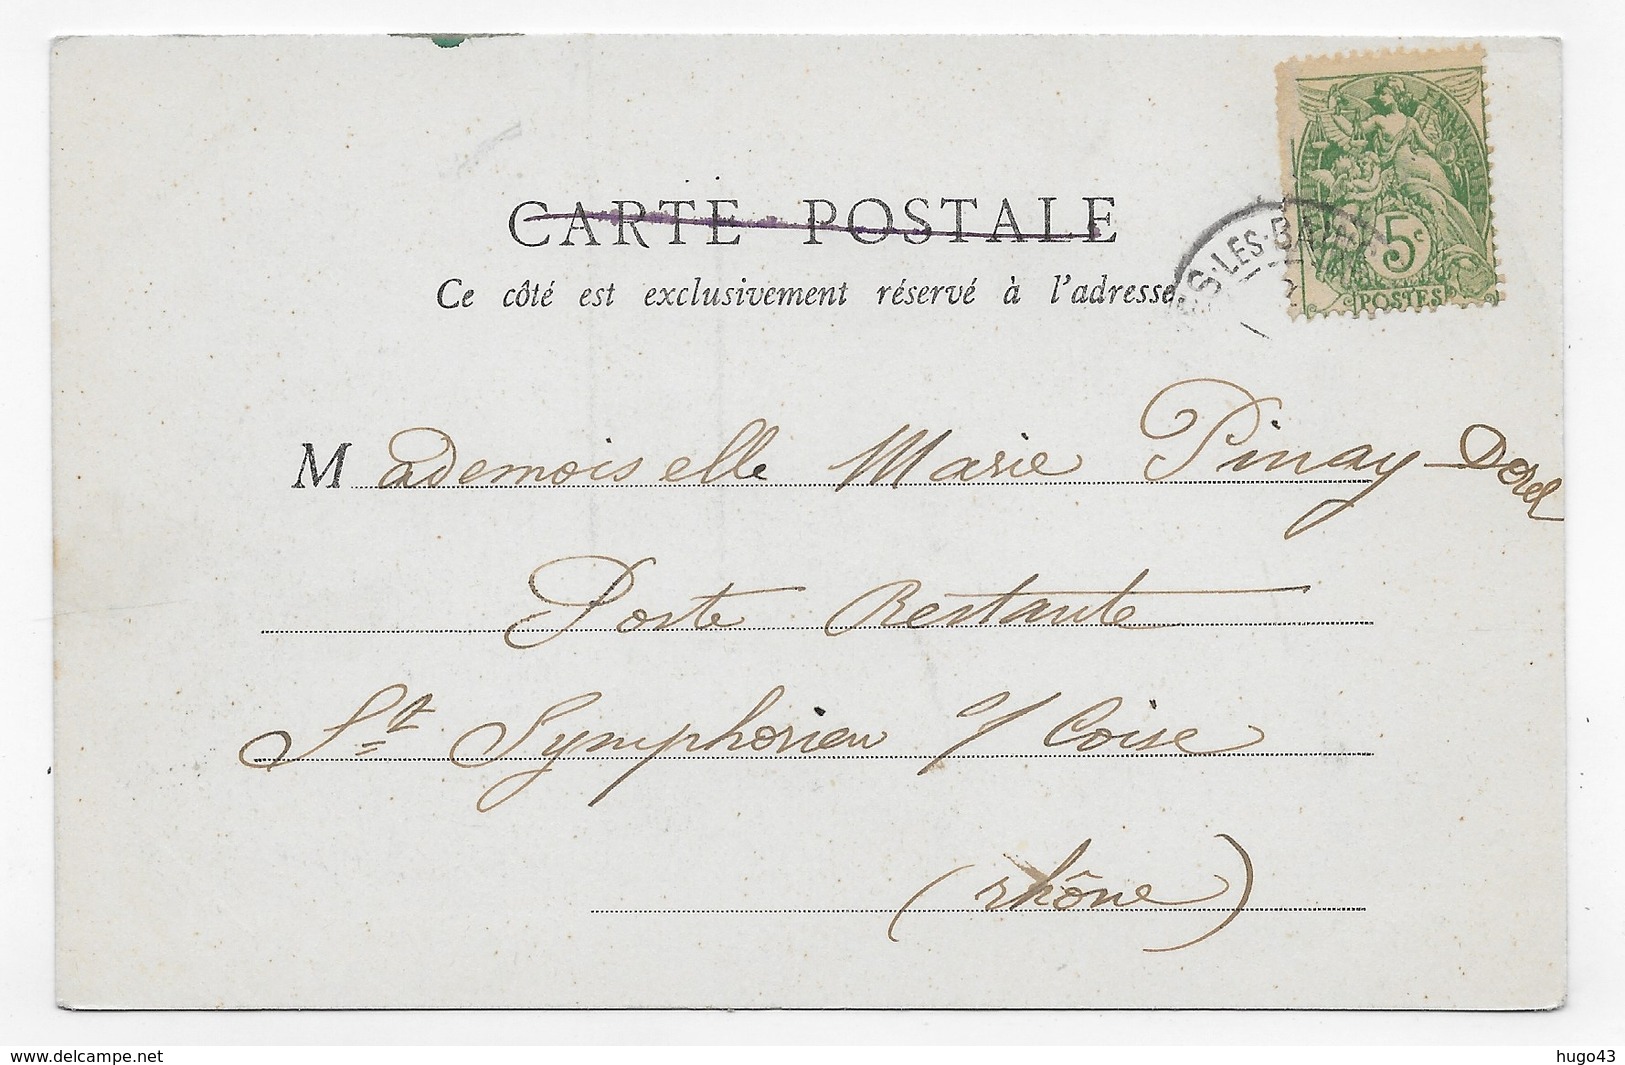 CARTE POSTALE
Ce côté est exclusivement réservé à l'adresse
FRANÇAISE
5c
POSTES
LES-BAINS
Mademoiselle Marie Pinay-Dorel
Poste Restante
St Symphorien s/ Coise
(rhône)
www.delcampe.net
hugo43